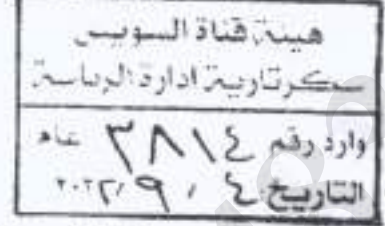 هيئة قناة السويس
سكرتارية ادارة الرياسة
وارد رقم ٣٨١٤ عام
التاريخ ٤ / ٩ / ٢٠٢٢